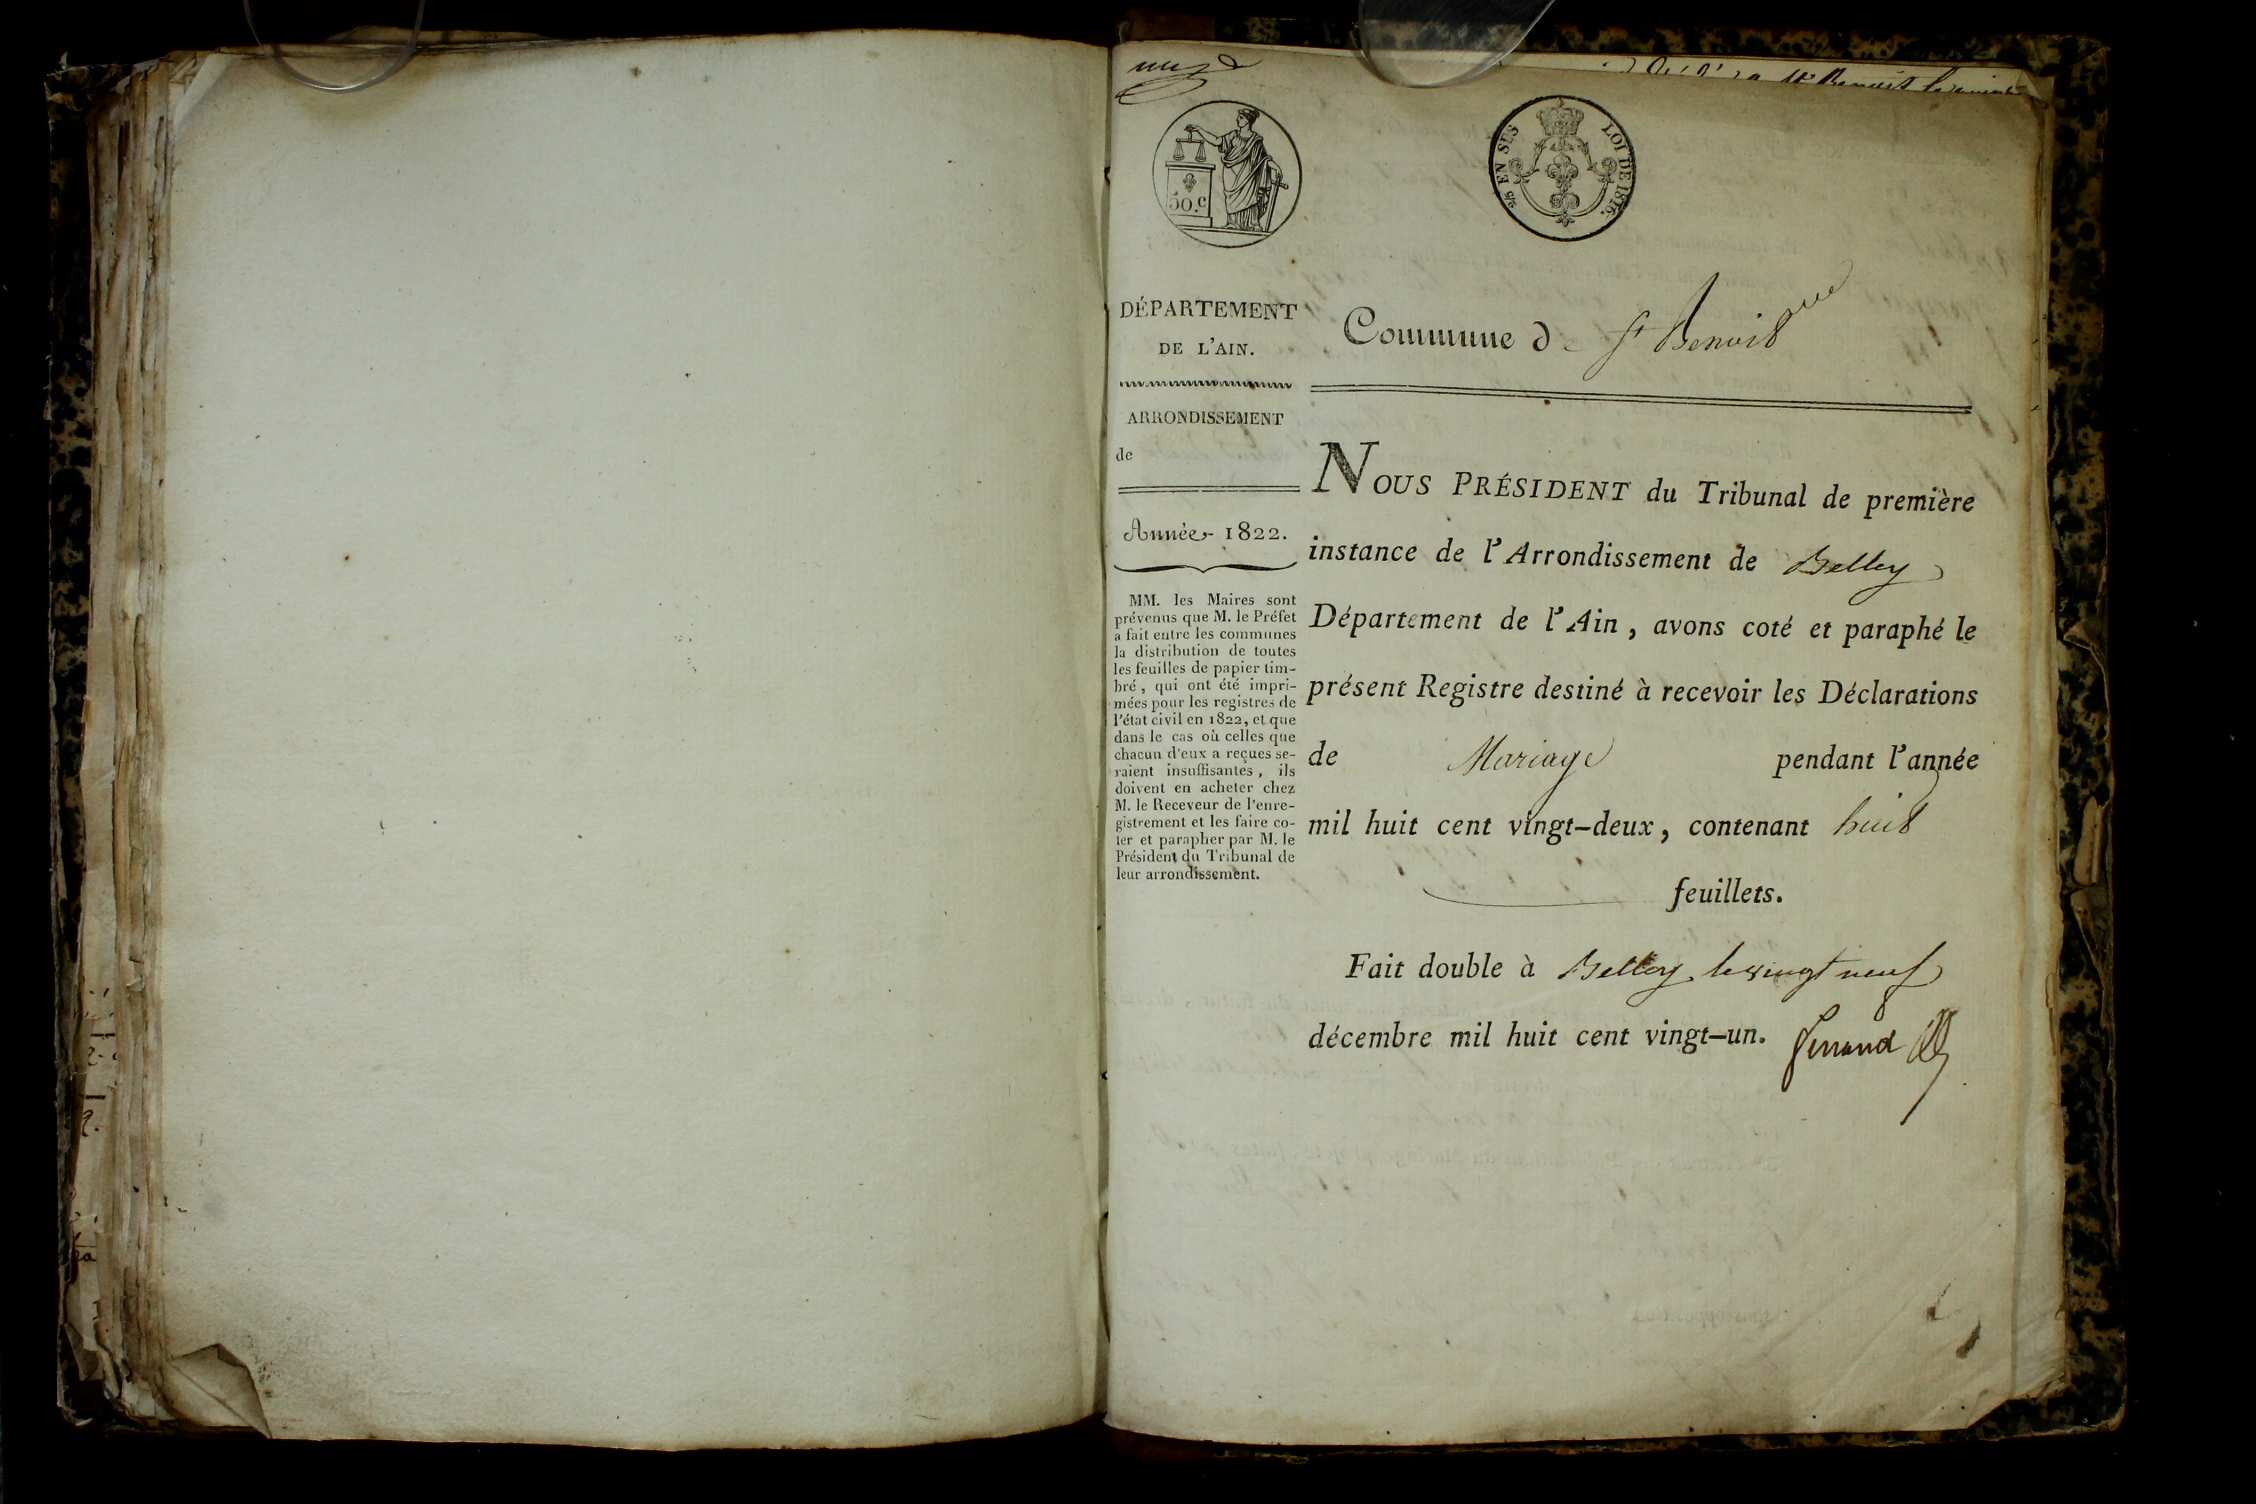 50.c
EN SUS
LOI DE 1816.
DÉPARTEMENT
DE L'AIN.
ARRONDISSEMENT
de
Année 1822.
MM. les Maires sont
prévenus que M. le Préfet
a fait entre les communes
la distribution de toutes
les feuilles de papier tim-
bré, qui ont été impri-
mées pour les registres de
l'état civil en 1822, et que
dans le cas où celles que
chacun d'eux a reçues se-
raient insuffisantes, ils
doivent en acheter chez
M. le Receveur de l'enre-
gistrement et les faire co-
ter et parapher par M. le
Président du Tribunal de
leur arrondissement.
Commune de St Benoit
NOUS PRÉSIDENT du Tribunal de première
instance de l'Arrondissement de Belley
Département de l'Ain, avons coté et paraphé le
présent Registre destiné à recevoir les Déclarations
de Mariage pendant l'année
mil huit cent vingt-deux, contenant huit
feuillets.
Fait double à Belley le vingt neuf
décembre mil huit cent vingt-un.